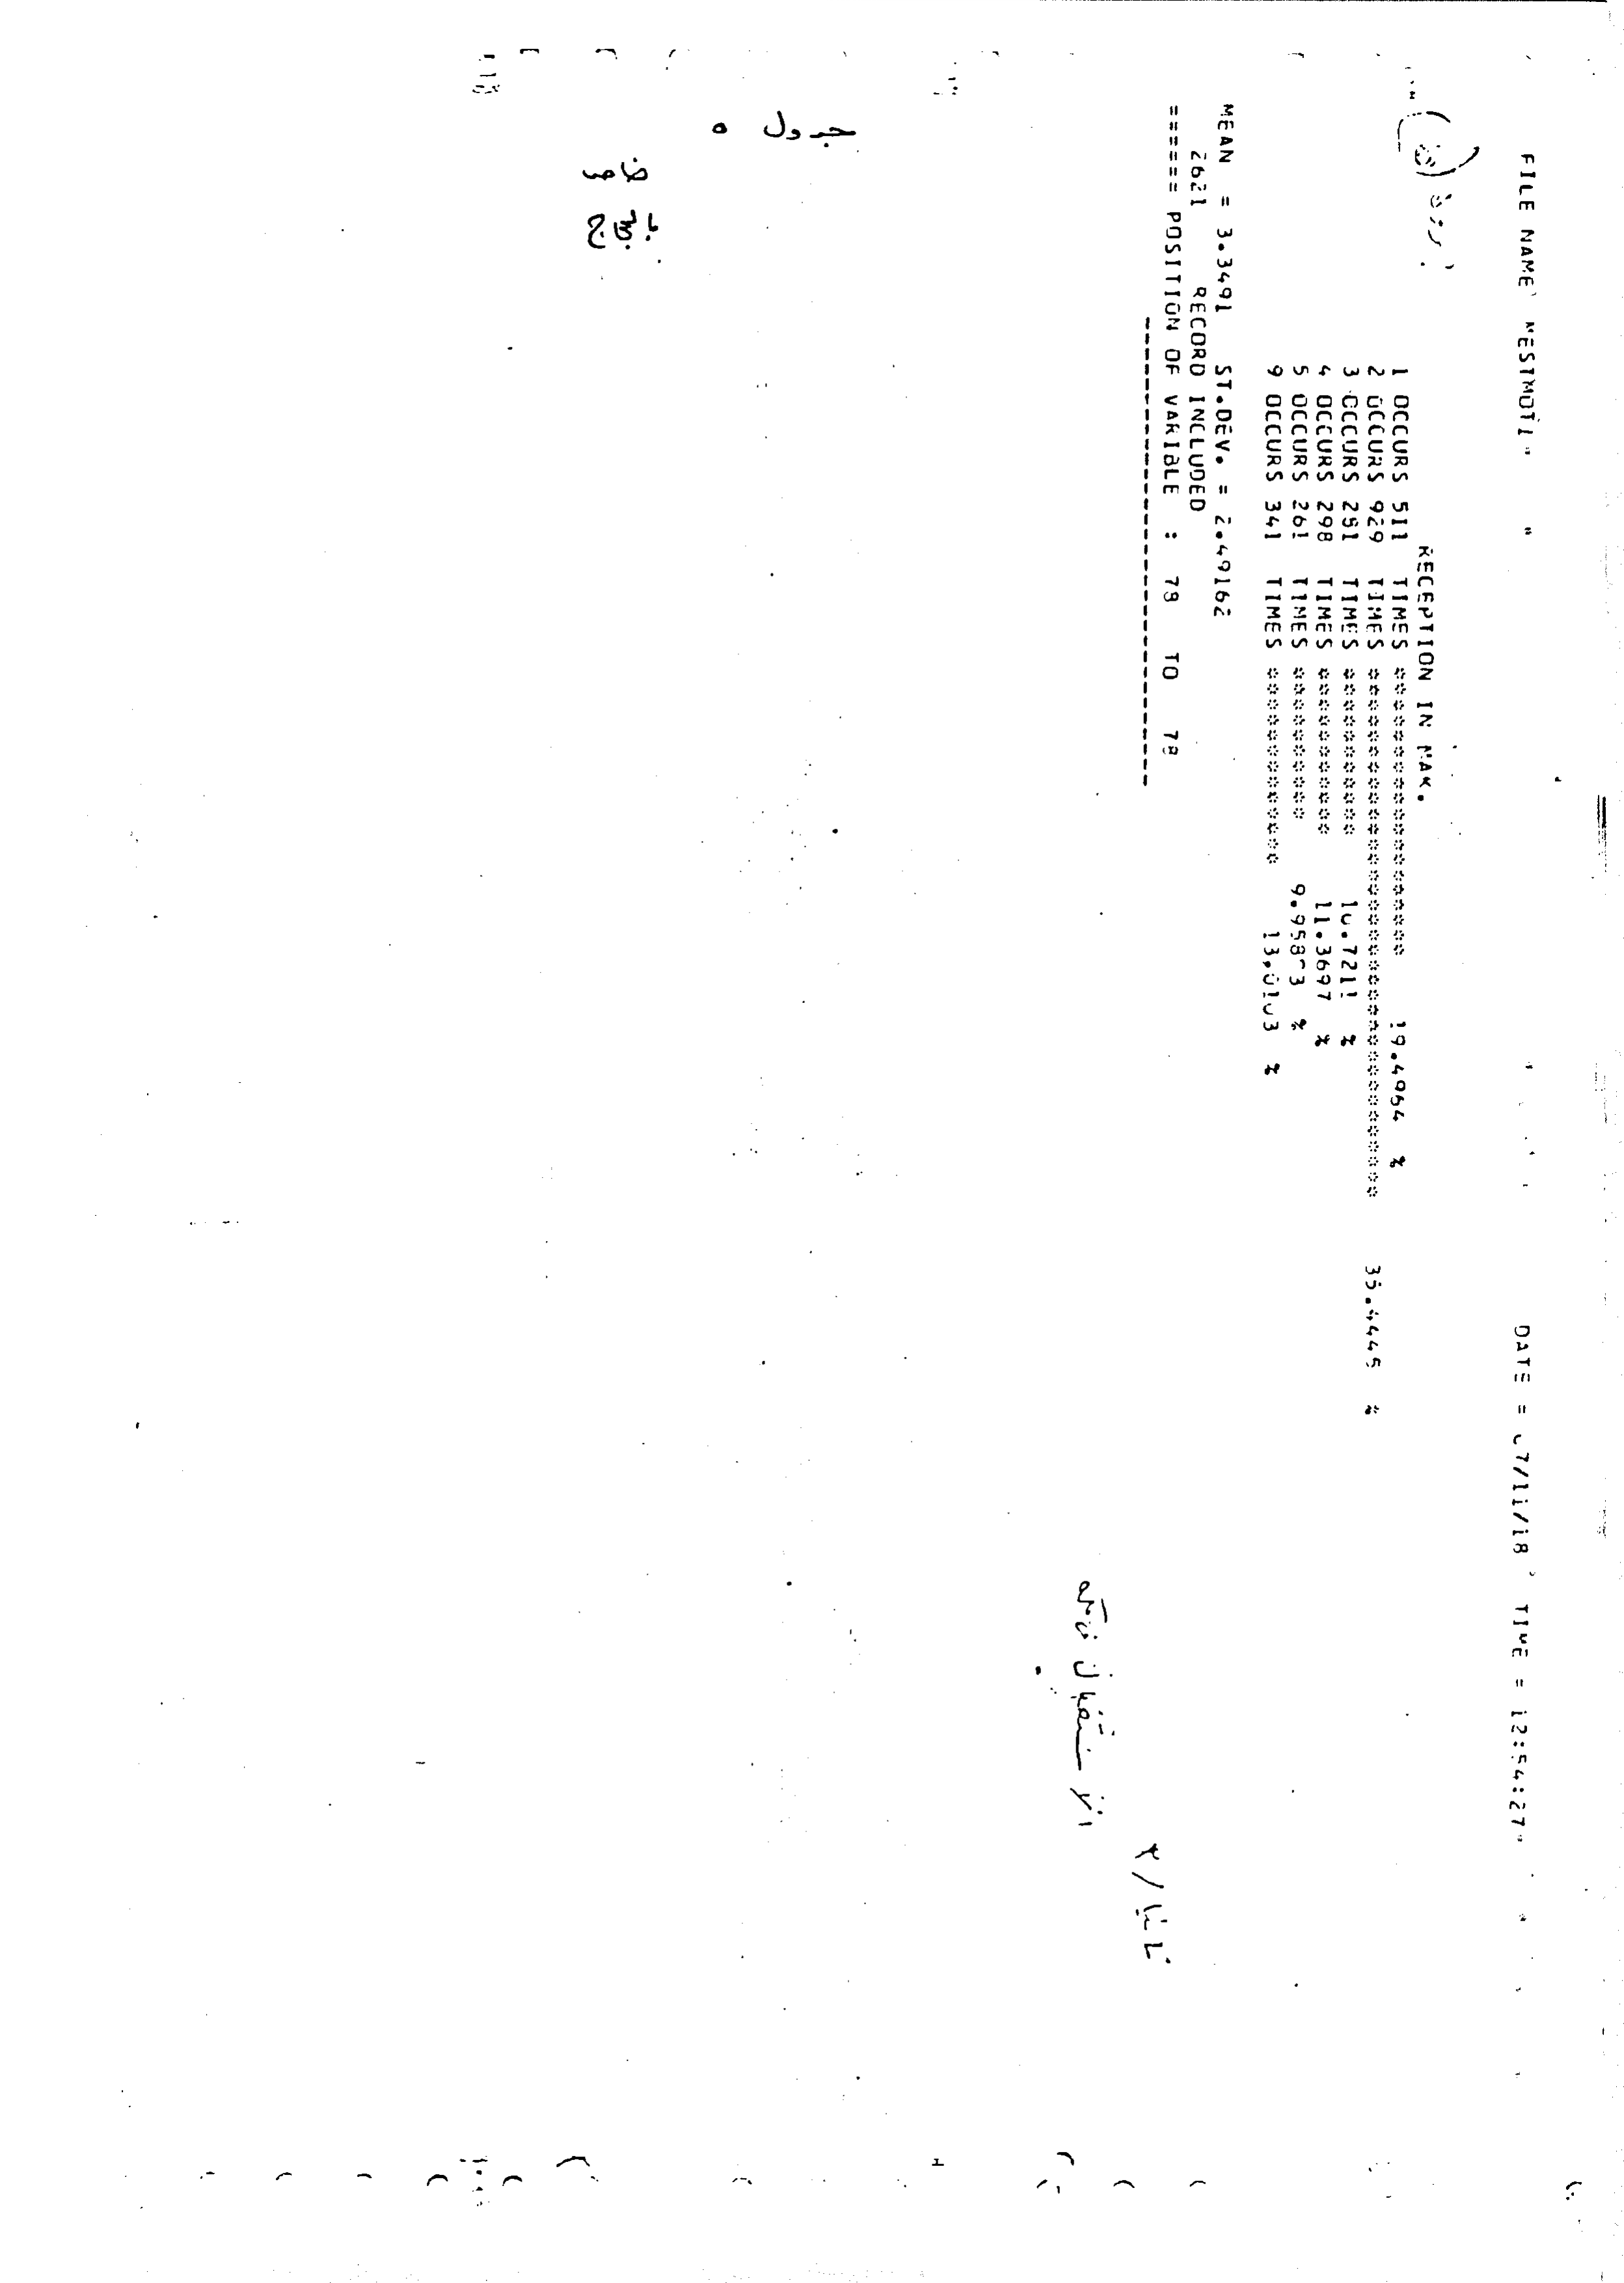 جدول ٥
خاص
بالحجاج
FILE NAME MESTMOT1 " " DATE = 07/11/18 TIME = 12:54:27"
RECEPTION IN MAK.
1 OCCURS 511 TIMES ******************** 19.4964 %
2 OCCURS 929 TIMES *********************************** 35.4445 %
3 OCCURS 281 TIMES *********** 10.7211 %
4 OCCURS 298 TIMES *********** 11.3697 %
5 OCCURS 261 TIMES ********** 9.95803 %
9 OCCURS 341 TIMES ************* 13.0103 %
MEAN = 3.3491 ST.DEV. = 2.49162
2621 RECORD INCLUDED
====== POSITION OF VARIBLE : 78 TO 78
--------------------------------------